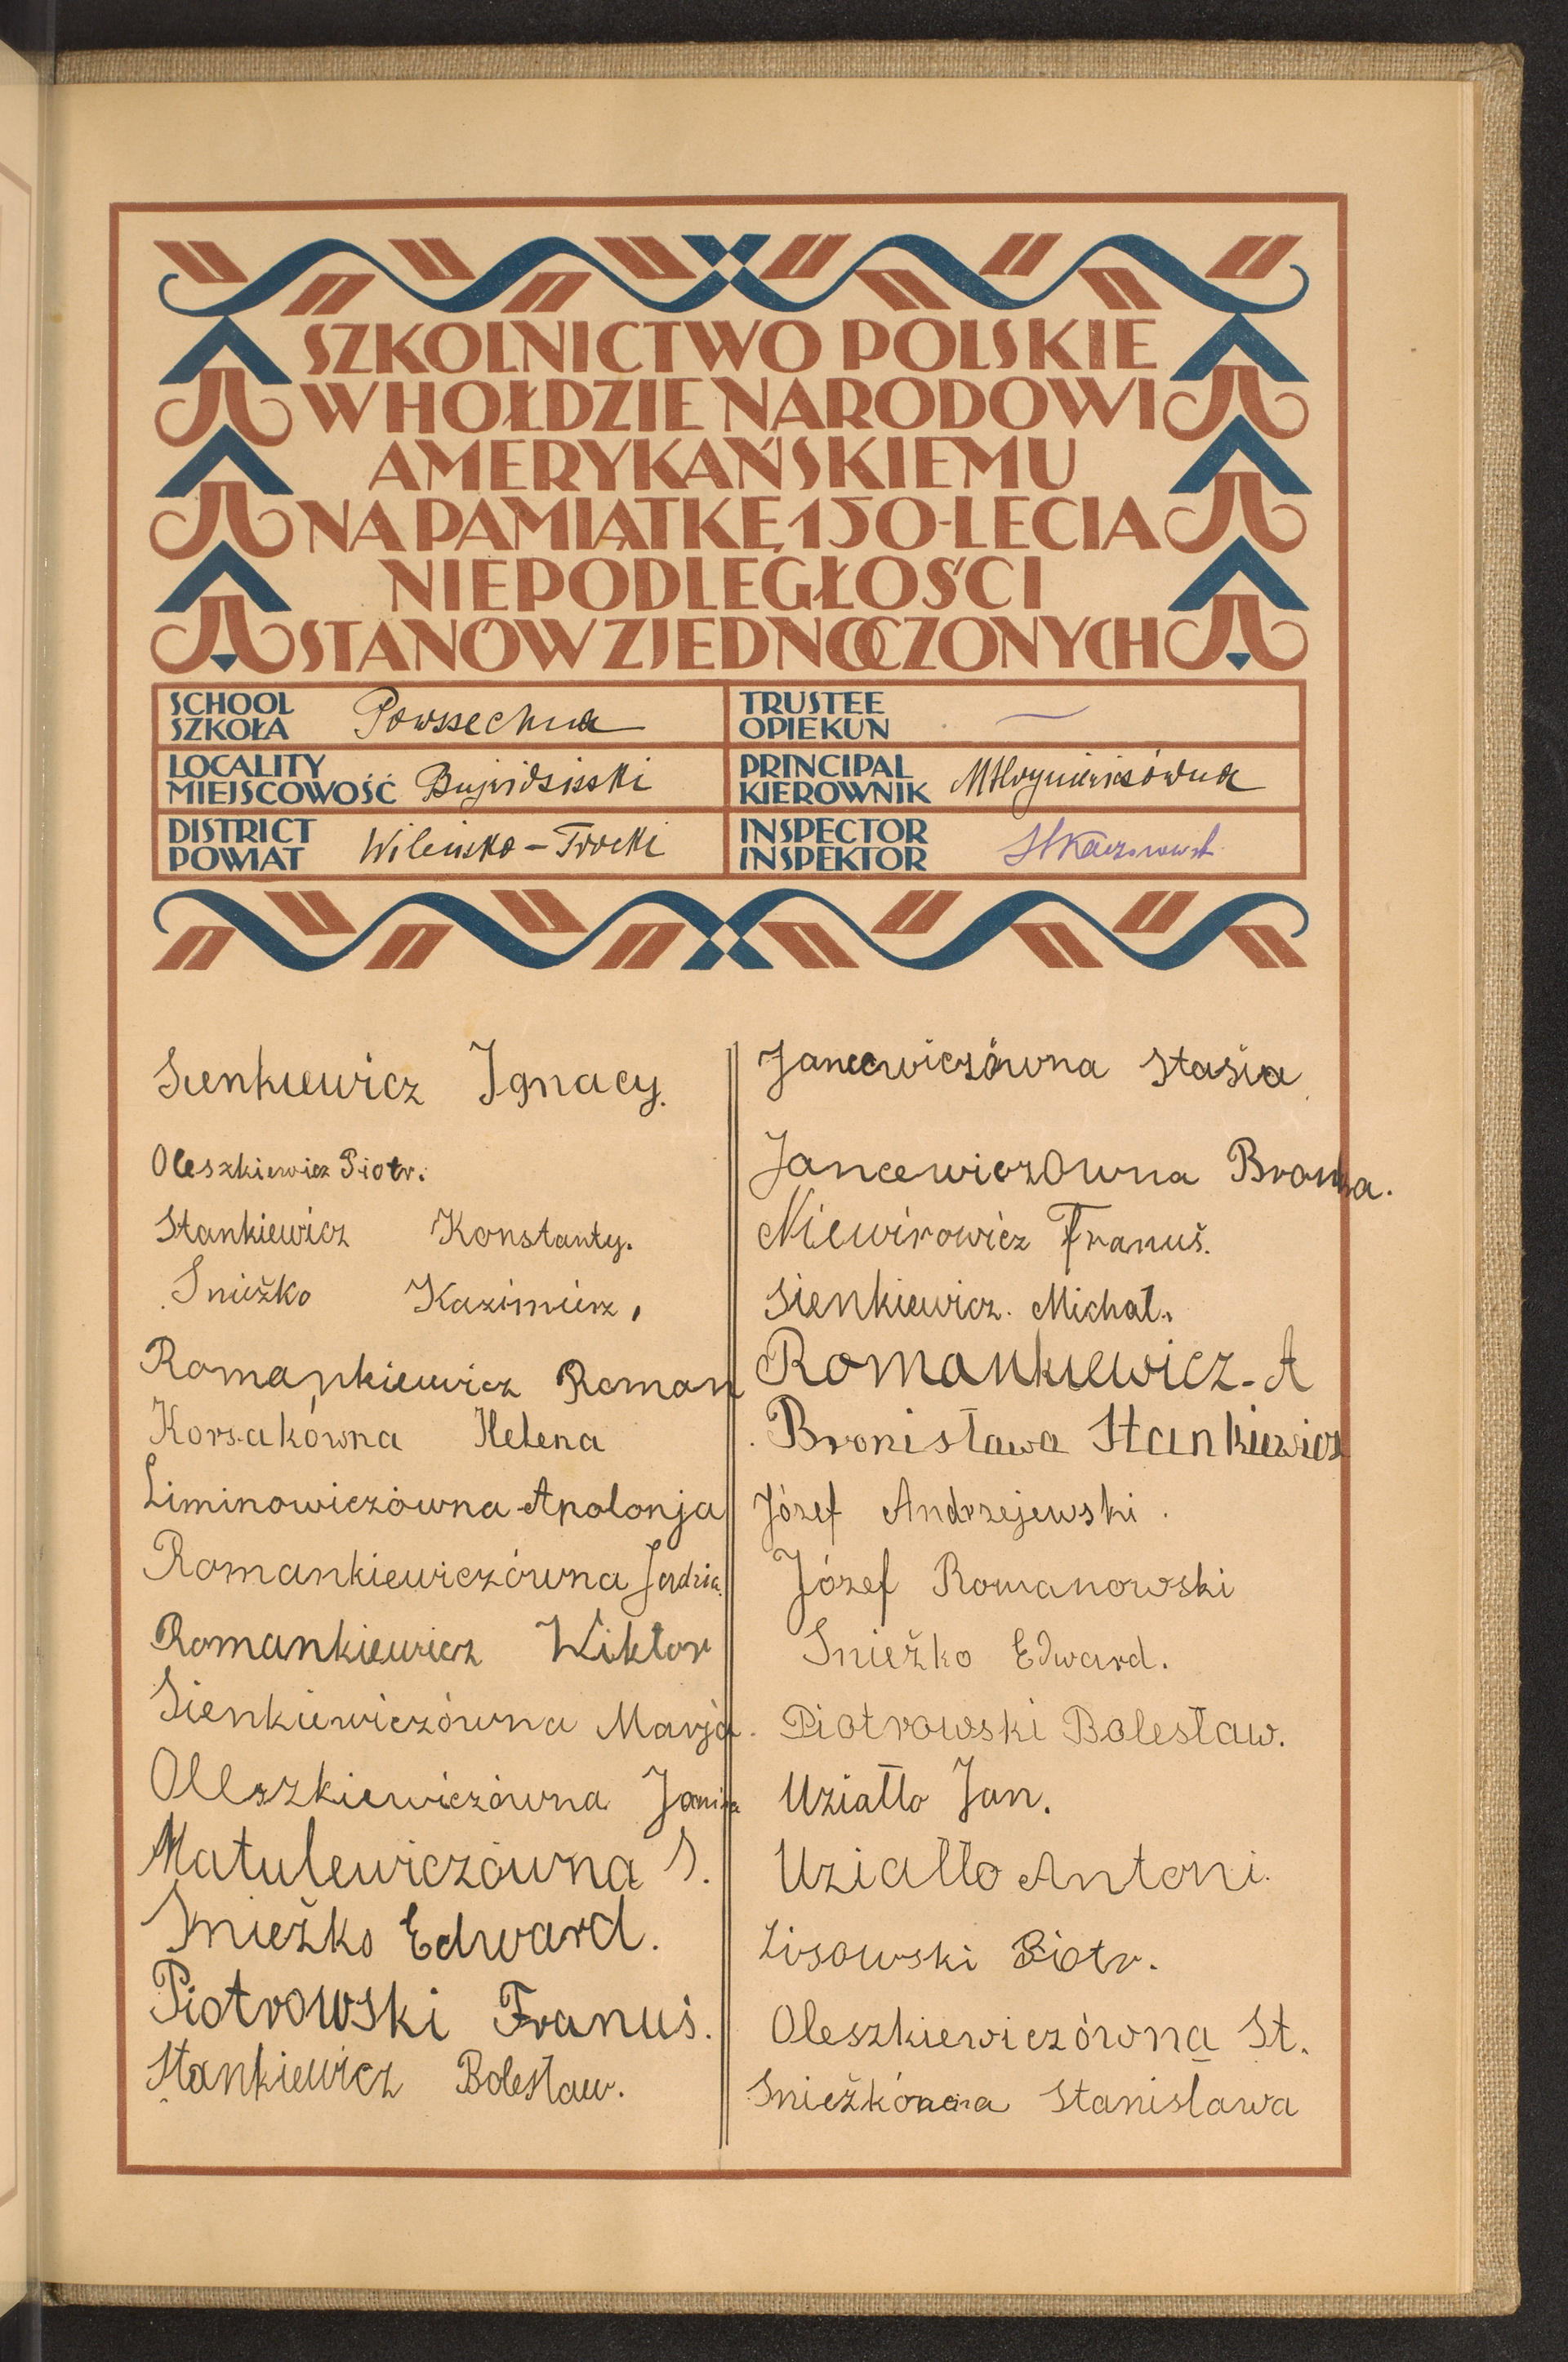 SZKOLNICTWO POLSKIE
W HOŁDZIE NARODOWI
AMERYKAŃSKIEMU
NA PAMIĄTKĘ 150-LECIA
NIEPODLEGŁOŚCI
STANÓW ZJEDNOCZONYCH
SCHOOL
SZKOŁA Powszechna
TRUSTEE
OPIEKUN —
LOCALITY
MIEJSCOWOŚĆ
PRINCIPAL
KIEROWNIK
DISTRICT
POWIAT Wileńsko-Trocki
INSPECTOR
INSPEKTOR
Sienkiewicz Ignacy.
Oleszkiewicz Piotr.
Stankiewicz Konstanty.
Snieżko Kazimierz,
Romankiewicz Roman
Korsakówna Helena
Liminowiczówna Apolonja
Romankiewiczówna Jadzia.
Romankiewicz Wiktor
Sienkiewiczówna Marja.
Oleszkiewiczówna Janina
Matulewiczówna S.
Snieżko Edward.
Piotrowski Franuś.
Stankiewicz Bolesław.
Jancewiczówna Stasia.
Jancewiczówna Bronia.
Niewirowicz Franuś.
Sienkiewicz. Michał.
Romankiewicz-A
Bronisława Stankiewicz
Józef Andrzejewski.
Józef Romanowski
Snieżko Edward.
Piotrowski Bolesław.
Uziałło Jan.
Uziałło Antoni.
Lisowski Piotr.
Oleszkiewiczówna St.
Snieżkówna Stanisława